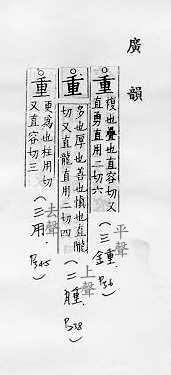 廣韻
○重
復也疊也直容切又
直勇直用二切六
平聲
(三鍾. P36)
○重
多也厚也善也慎也直隴
切又直龍直用二切四
上聲
(二腫. P238)
○重
更爲也柱用切
又直容切三
去聲
(三用. P345)